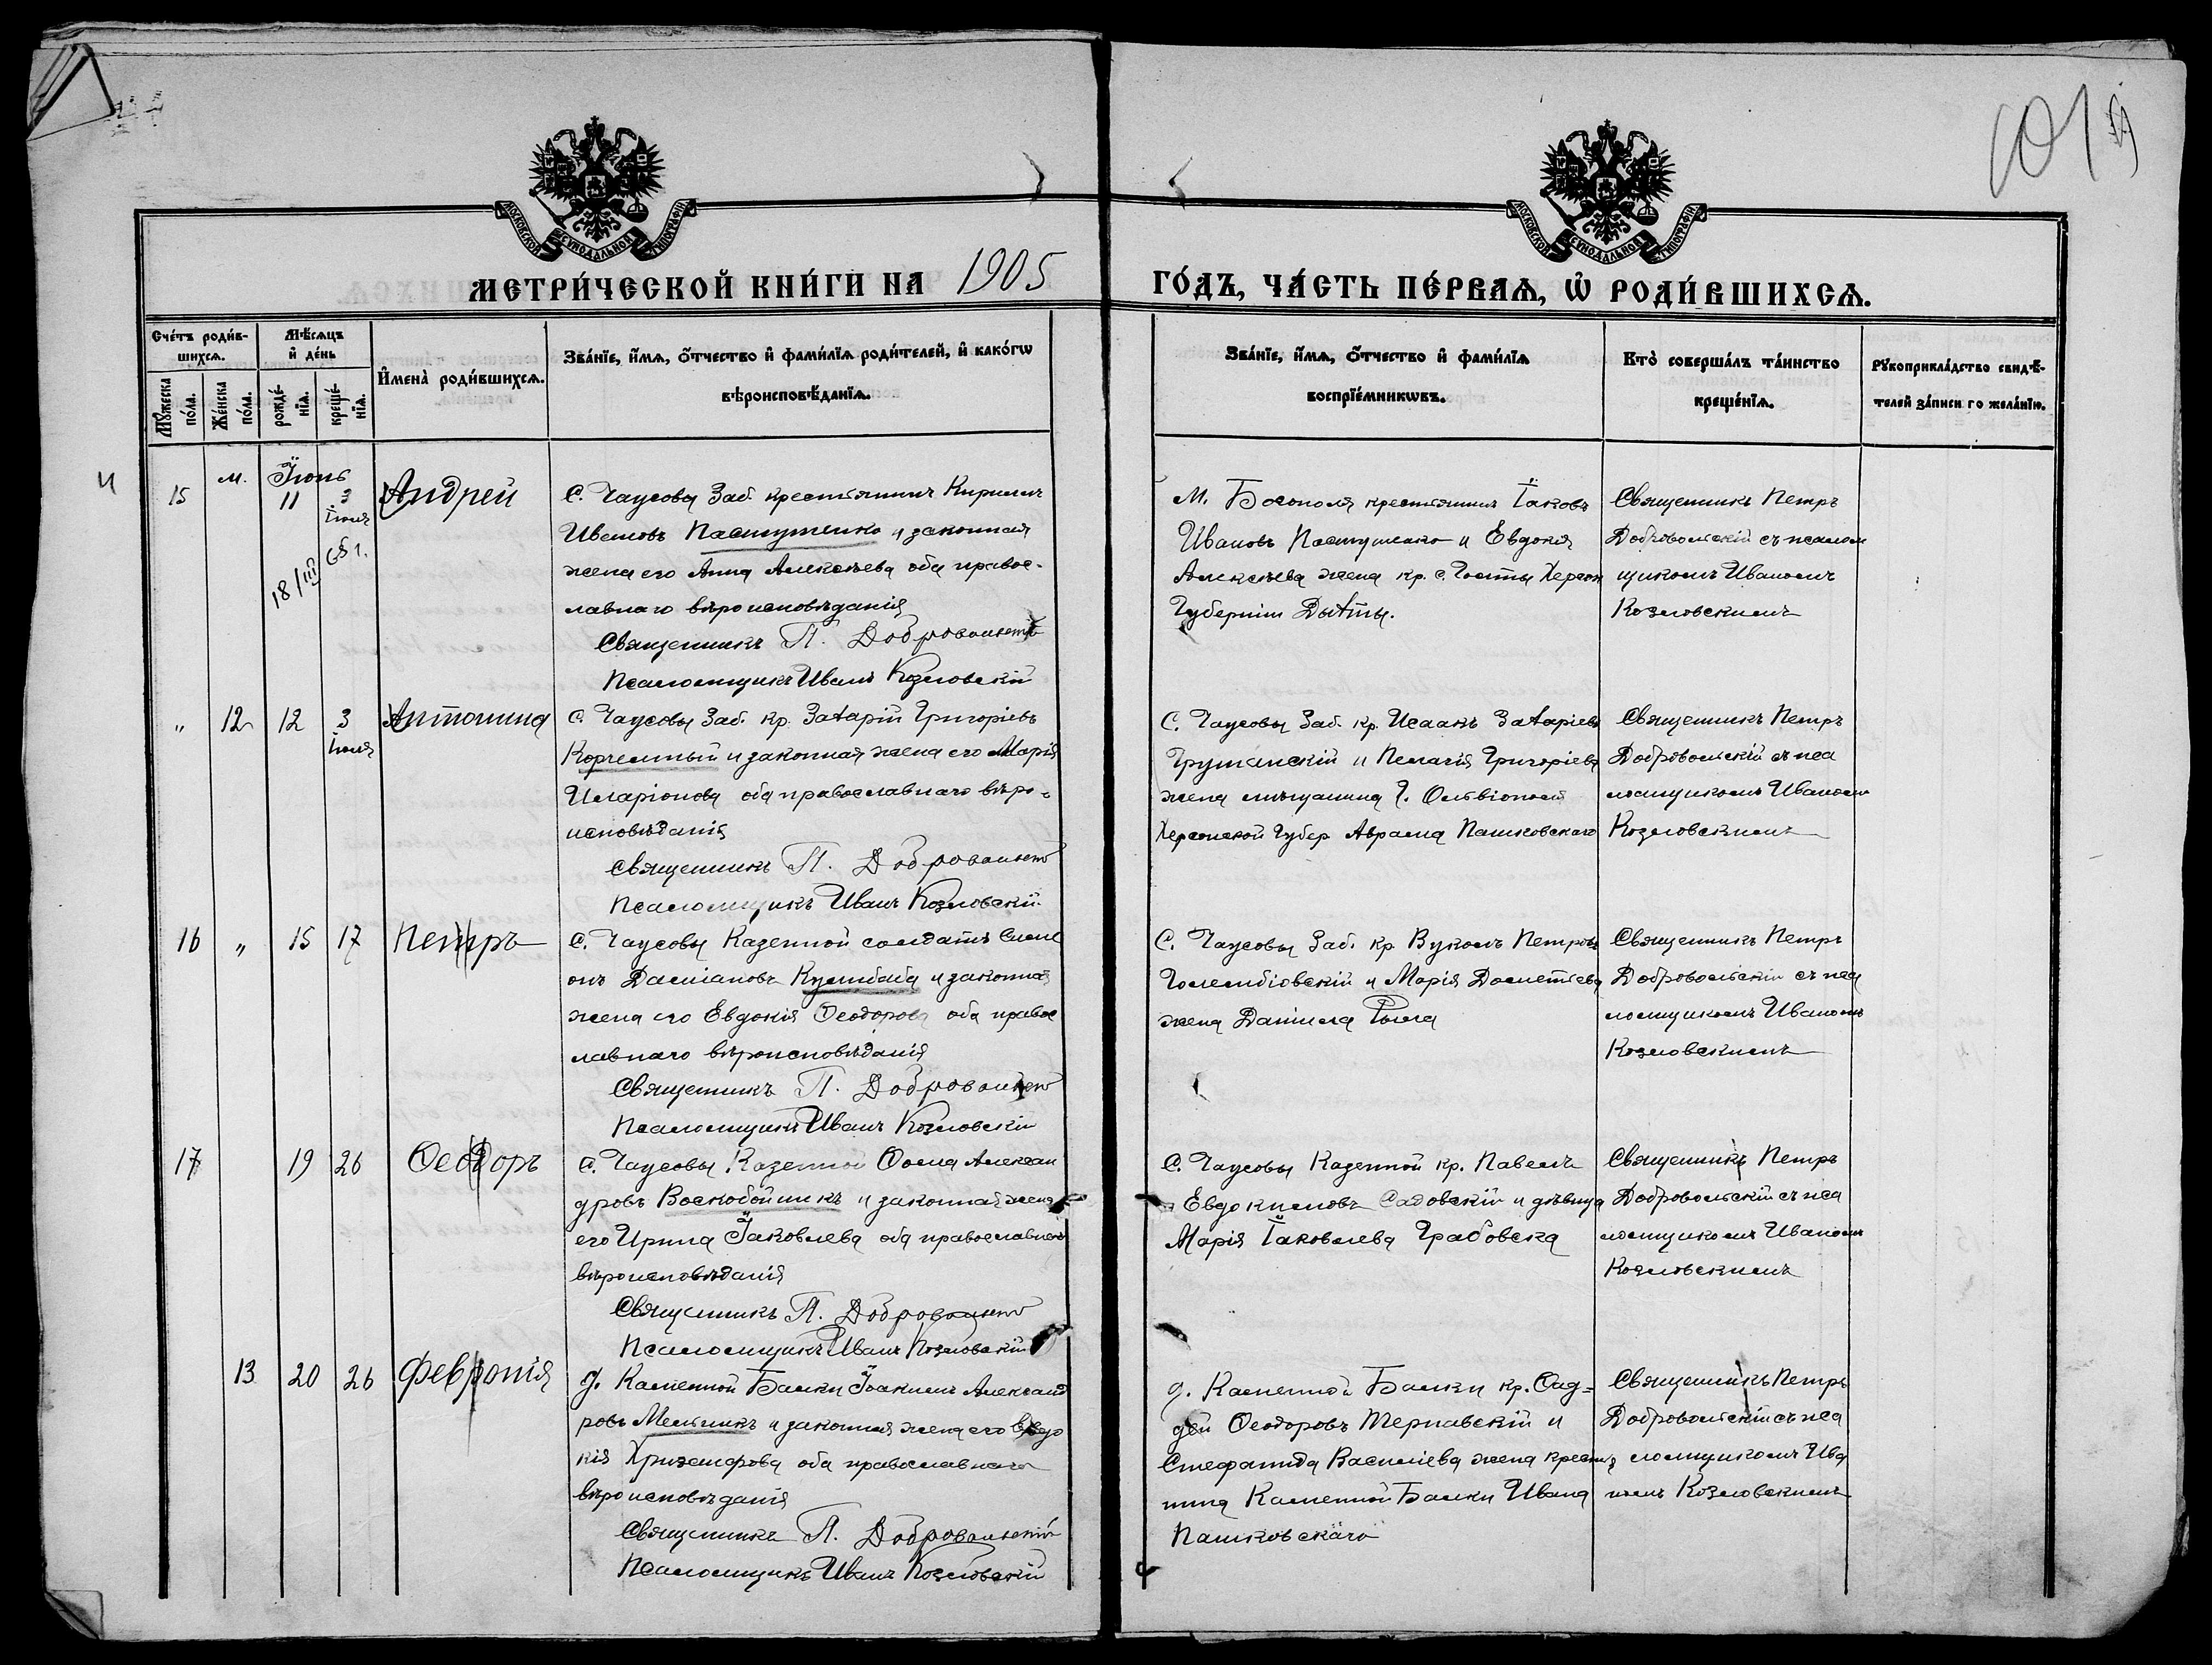 101
МОСКОВСКОЙ СѴНОДАЛЬНОЙ ТИПОГРАФІИ
МОСКОВСКОЙ СѴНОДАЛЬНОЙ ТИПОГРАФІИ
МЕТРИ́ЧЕСКОЙ КНИ́ГИ НА 1905 ГО́ДЪ, ЧА́СТЬ ПЕ́РВАѦ, Ѽ РОДИ́ВШИХСѦ.
Сче́тъ роди́в-
шихсѧ.
Мꙋжеска по́ла.
Же́нска по́ла.
Мѣ́сѧцъ
и҆ де́нь
рожде́-
нїѧ.
креще́-
нїѧ.
И҆мена̀ роди́вшихсѧ.
Зва́нїе, и҆́мѧ, ѻ҆́тчество и҆ фами́лїѧ роди́телей, и҆ како́гѡ
вѣроисповѣ́данїѧ.
Зва́нїе, и҆́мѧ, ѻ҆́тчество и҆ фами́лїѧ
воспрїе́мникѡвъ.
Кто̀ соверша́лъ та́инство
креще́нїѧ.
Рꙋкоприкла́дство свидѣ́-
телей за́писи по жела́нїю.
15 м. Іюнь 11 3 Іюля Андрей
18/III 68 г.
С. Чаусовы Заб. крестьянинъ Кирилъ
Ивановъ Пастушенко и законная
жена его Анна Алексѣева оба правос-
лавнаго вѣроисповѣданія
Священникъ П. Добровольскій
Псаломщикъ Иванъ Козловскій
М. Богополя крестьянинъ Іаковъ
Ивановъ Пастушенко и Евдокія
Алексѣева жена кр. с. Херсон
Губерніи
Священникъ Петръ
Добровольскій съ псалом
щикомъ Иваномъ
Козловскимъ
„ 12 12 3 Іюля Антонина
С. Чаусовы Заб. кр. Захарій Григоріевъ
Корчемный и законная жена его Марія
Иларіонова оба православнаго вѣро-
исповѣданія
Священникъ П. Добровольскій
Псаломщикъ Иванъ Козловскій
С. Чаусовы Заб. кр. Исаакъ Захаріевъ
Грушанскій и Пелагія Григоріева
жена мѣщанина г. Ольвіополя
Херсонской Губер Аврама Пашковскаго
Священникъ Петръ
Добровольскій съ пса
ломщикомъ Иваномъ
Козловскимъ
16 „ 15 17 Петръ
С. Чаусовы Казенной солдатъ Симе
онъ Даміановъ Кульбаба и законная
жена его Евдокія Ѳеодорова оба правос
лавнаго вѣроисповѣданія
Священникъ П. Добровольскій
Псаломщикъ Иванъ Козловскій
С. Чаусовы Заб. кр Вуколъ Петровъ
Голембіовскій и Марія Дометіева
жена Даніила
Священникъ Петръ
Добровольскій съ пса
ломщикомъ Иваномъ
Козловскимъ
17 19 26 Ѳеодоръ
С. Чаусовы Казенной Ѳома Алексан
дровъ Воскобойникъ и законная жена
его Ирина Іаковлева оба православнаго
вѣроисповѣданія
Священникъ П. Добровольскій
Псаломщикъ Иванъ Козловскій
С. Чаусовы Казенной кр. Павелъ
Евдокимовъ Садовскій и дѣвица
Марія Іаковлева Грабовска
Священникъ Петръ
Добровольскій съ пса
ломщикомъ Иваномъ
Козловскимъ
13 20 26 Февронія
д. Каменной Балки Іоакимъ Александ
ровъ Мельникъ и законная жена его Евдо
кія Хрисанфова оба православнаго
вѣроисповѣданія
Священникъ П. Добровольскій
Псаломщикъ Иванъ Козловскій
д. Каменной Балки кр. Ѳад-
дей Ѳеодоровъ Тернавскій и
Стефанида Василіева жена крестья
нина Каменной Балки Ивана
Пашковскаго
Священникъ Петръ
Добровольскій съ пса
ломщикомъ Ива
номъ Козловскимъ